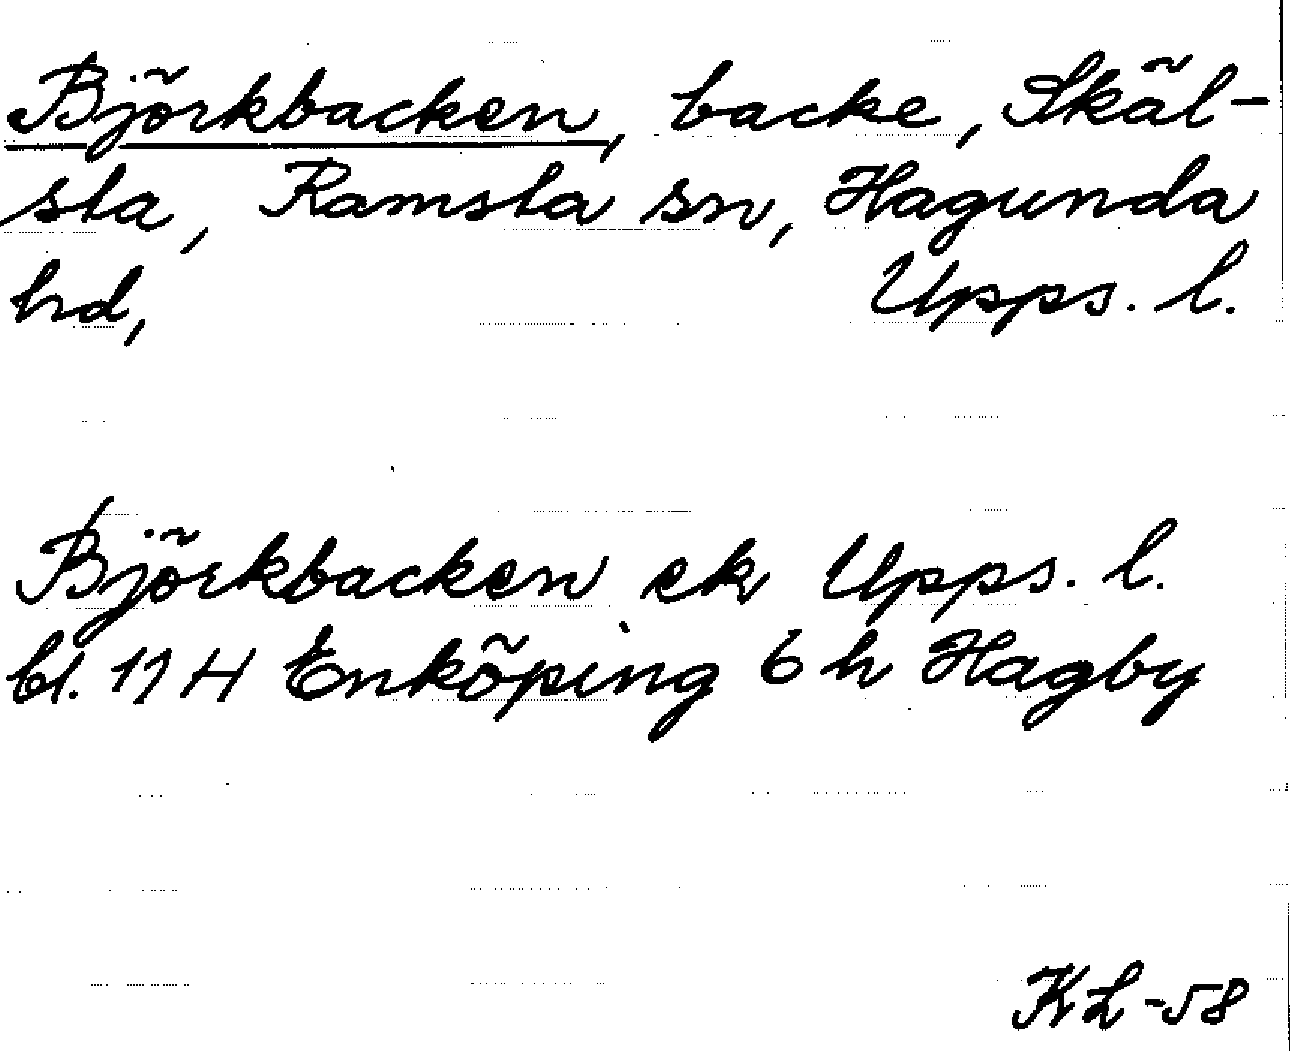 Björkbacken, backe, Skäl-
sta, Ramsta sn, Hagunda
hd, Upps. l.
Björkbacken ek Upps. l.
bl. 11 H Enköping 6 h Hagby
KL -58